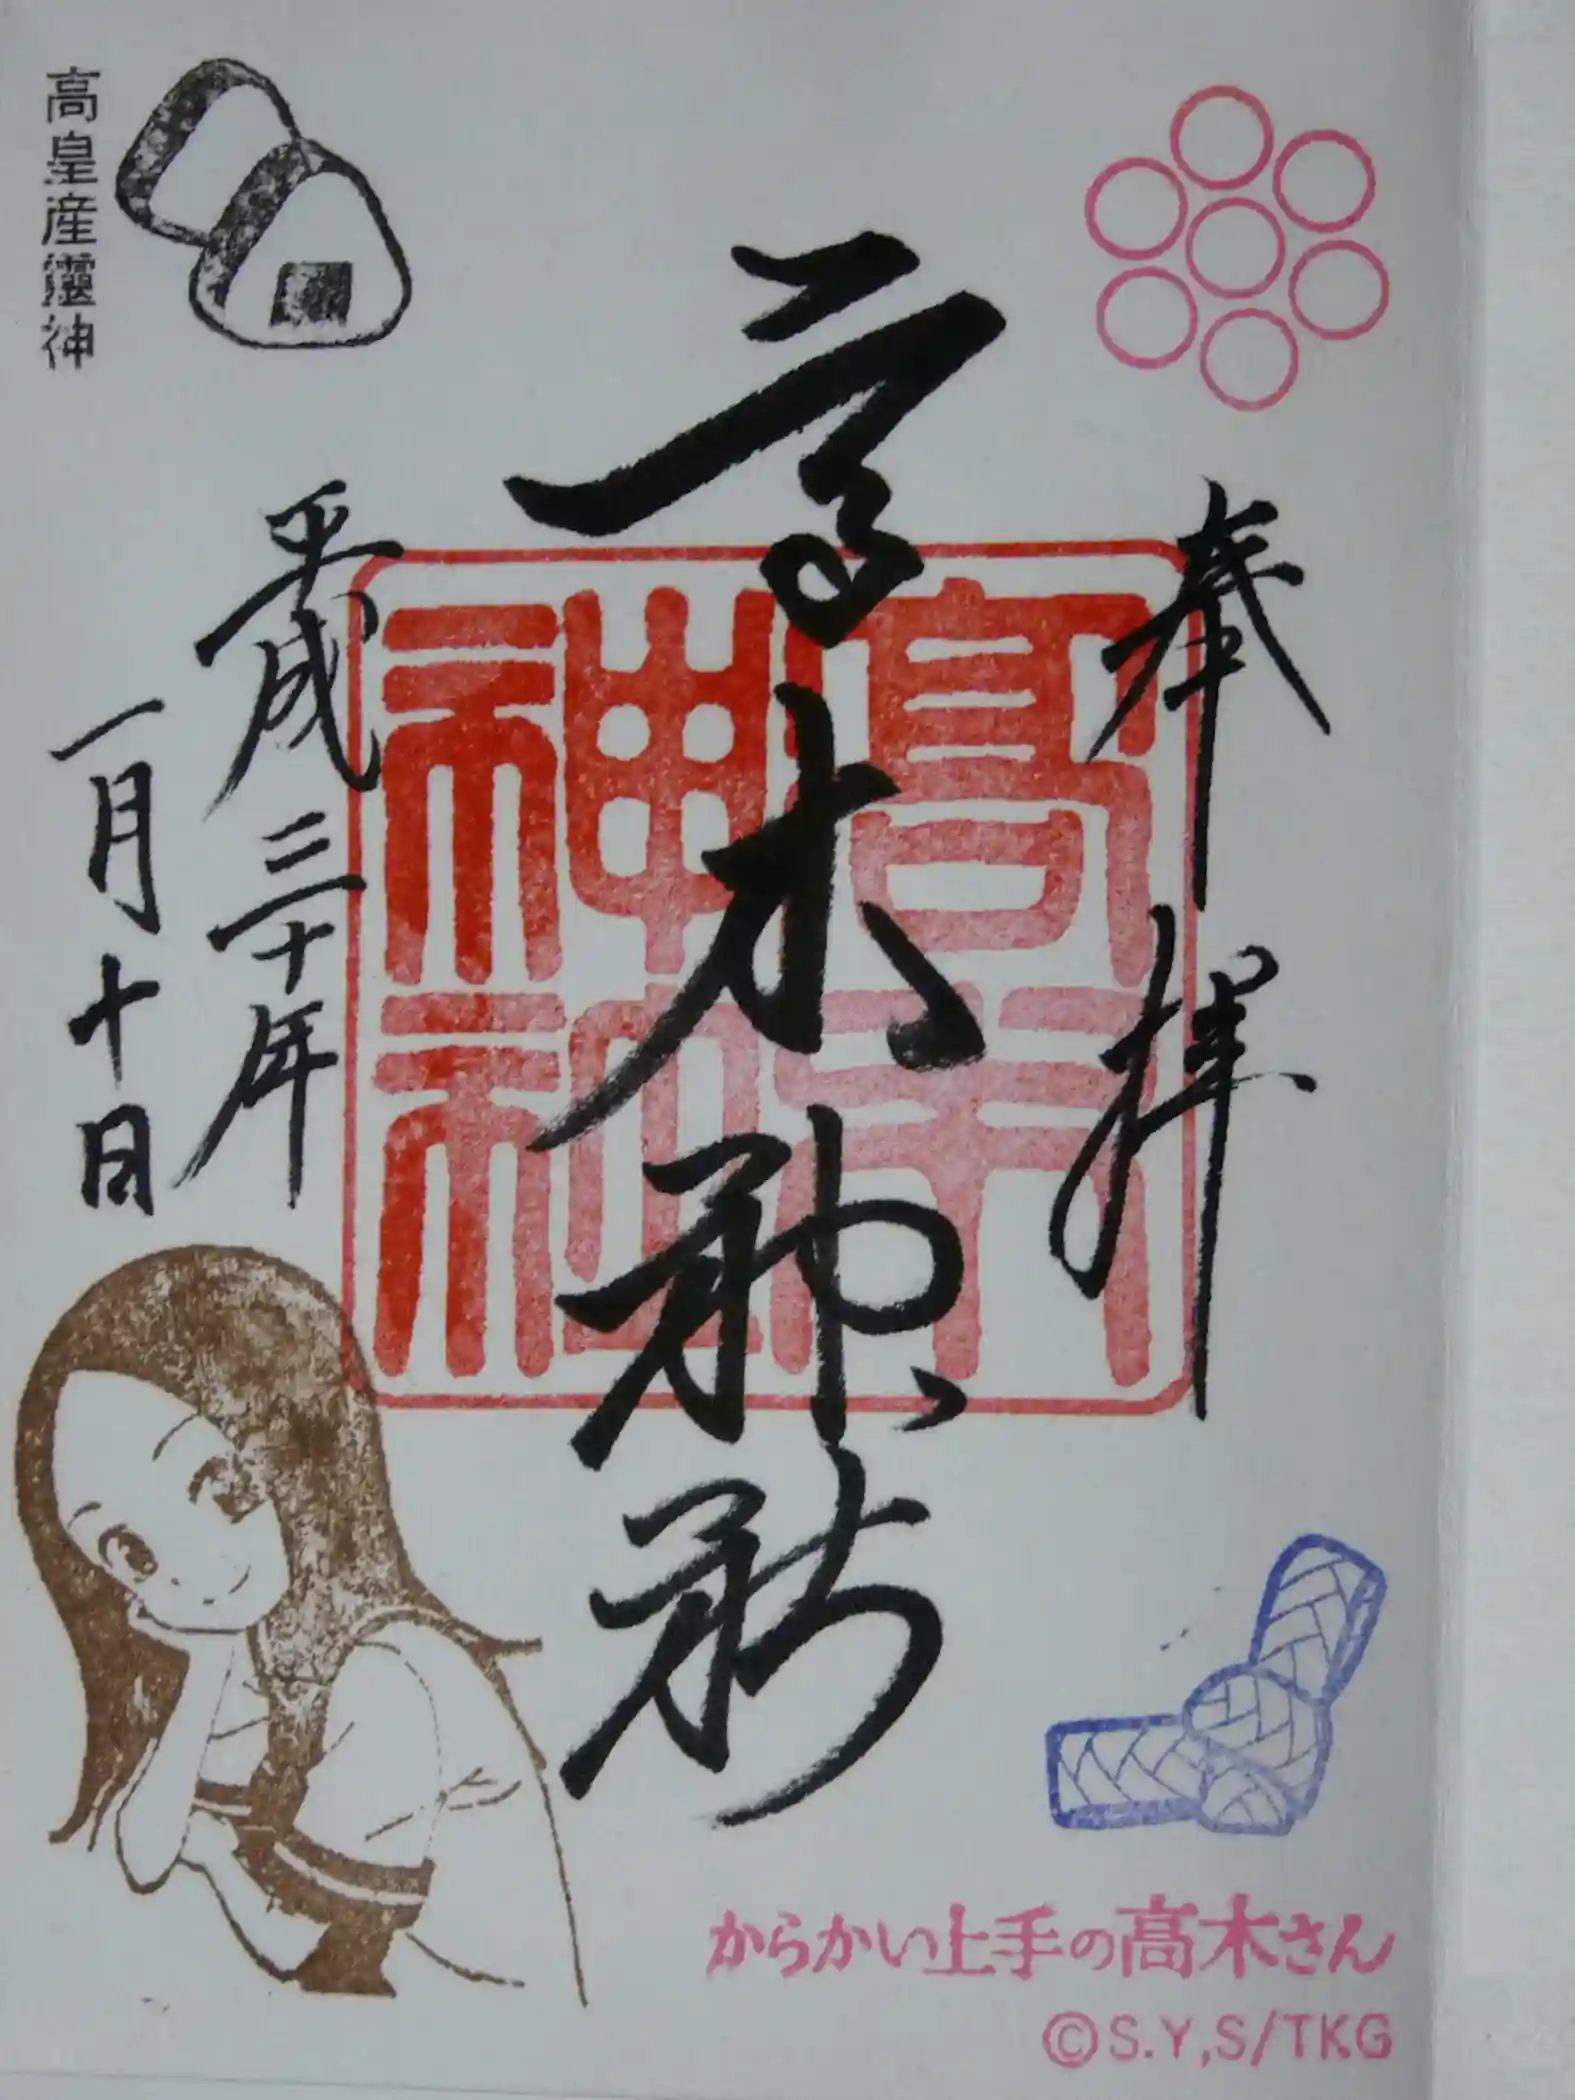 奉拝
高木神社
高木神社
平成三十年
一月十日
高皇産靈神
からかい上手の高木さん
©S.Y,S/TKG